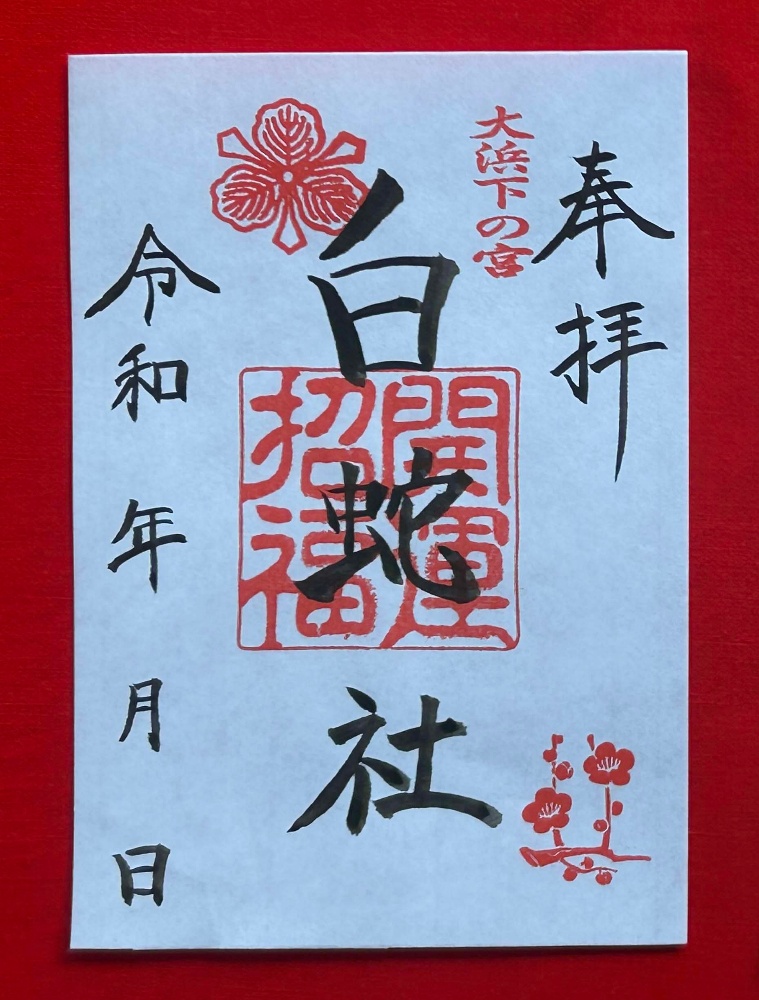 奉拝
大浜下の宮
白蛇社
開運
招福
令和 年 月 日